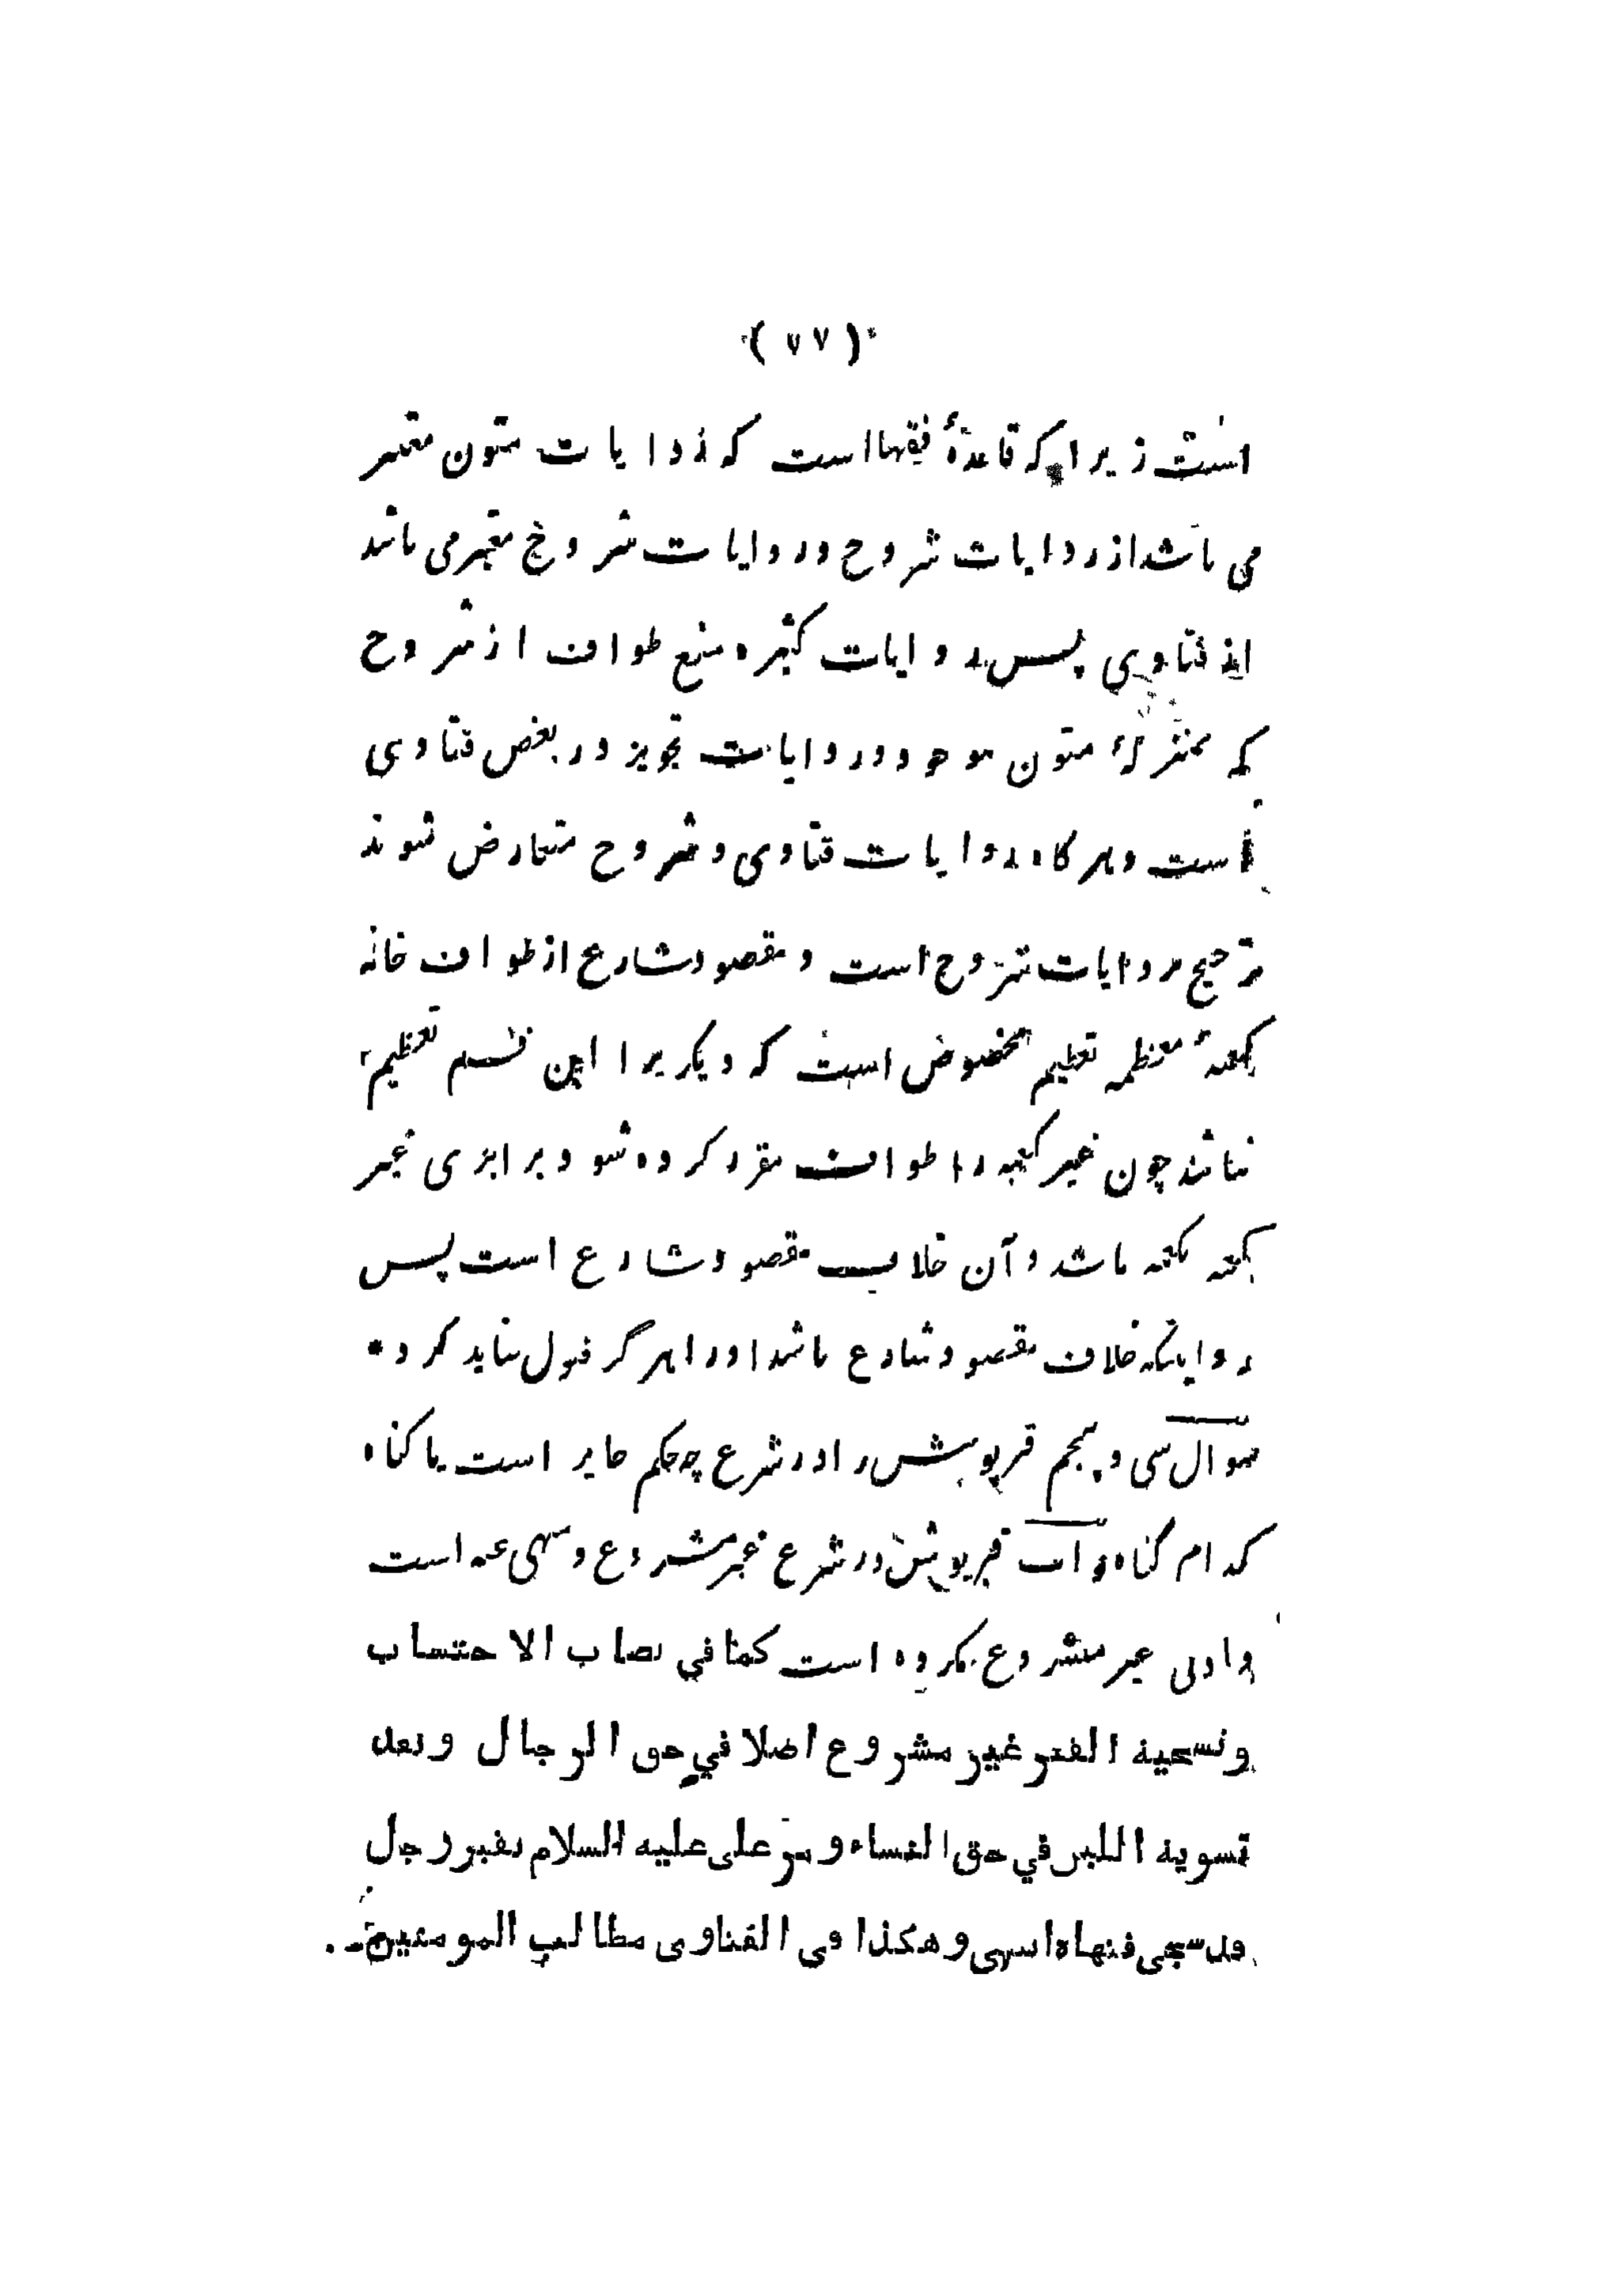 (۷۷)
است زیراکه قاعدهٔ فقها است که روایات متون معتبر
می باشد از روایات شروح و روایات شروح معتبر می باشد
از فتاوی پس روایات کثیره منع طواف از شروح
که بمنزلهٔ متون موجود و روایات تجویز در بعض فتاوی
است و هرگاه روایات فتاوی و شروح متعارض شوند
ترجیح روایات شروح است و مقصود شارع از طواف خانه
کعبهٔ معظمه تعظیم مخصوص است که دیگریرا این قسم تعظیم
نباشد چون غیر کعبه را طواف مقرر کرده شود برابری غیر
کعبه بکعبه باشد و آن خلاف مقصود شارع است پس
روایتیکه خلاف مقصود شارع باشد اورا هرگز قبول نباید کرد *
سوال سی و پنجم قبرپوش را در شرع چه حکم جایز است یا گناه
کدام گناه جواب قبرپوش در شرع غیر مشروع و منهی عنه است
و ادنی غیر مشروع مکروه است کما في نصاب الاحتساب
وتسجية القبر غير مشروع اصلا في حق الرجال وبعد
تسوية اللبن في حق النساء ومر علی عليه السلام بقبر رجل
قد سجی فنهاه انتهی وهكذا فی الفتاوی مطالب المومنين